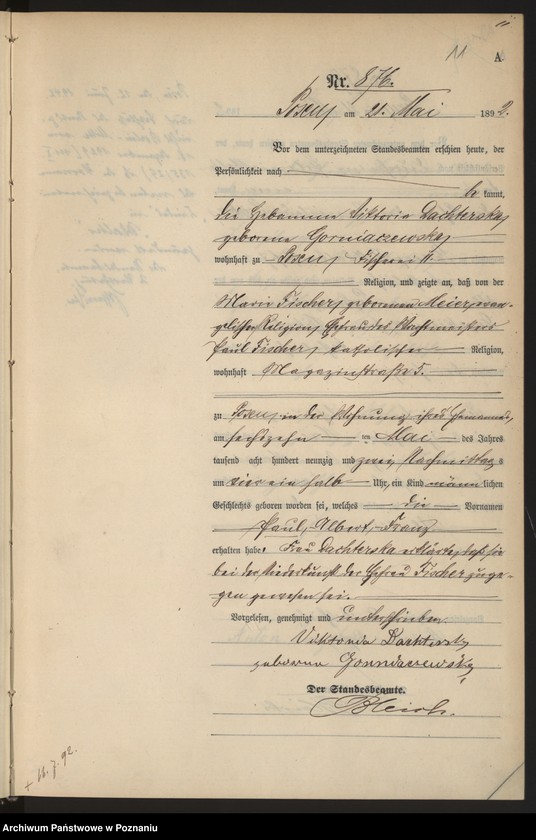 11
A
Nr. 876.
Posen am 21. Mai 1892.
Vor dem unterzeichneten Standesbeamten erschien heute, der
Persönlichkeit nach
be kannt,
die Hebamme Viktoria Dachterska,
geborene Gorniaczewska,
wohnhaft zu Posen, Fischerei 11
Religion, und zeigte an, daß von der
Marie Fischer, geborenen Meier, evan-
gelischer Religion, Ehefrau des Wachtmeisters
Paul Fischer, katholischer Religion,
wohnhaft Magazinstraße 5.
zu Posen, in der Wohnung ihres Ehemannes,
am sechszehn ten Mai des Jahres
tausend acht hundert neunzig und zwei, Nachmittags
um vier ein halb Uhr, ein Kind männ lichen
Geschlechts geboren worden sei, welches die Vornamen
Paul, Albert, Franz
erhalten habe. Frau Dachterska erklärte, daß sie
bei der Niederkunft der Ehefrau Fischer zuge-
gen gewesen sei.
Vorgelesen, genehmigt und unterschrieben.
Viktoria
geborene
Der Standesbeamte.
+ 16. 7. 92.
Archiwum Państwowe w Poznaniu